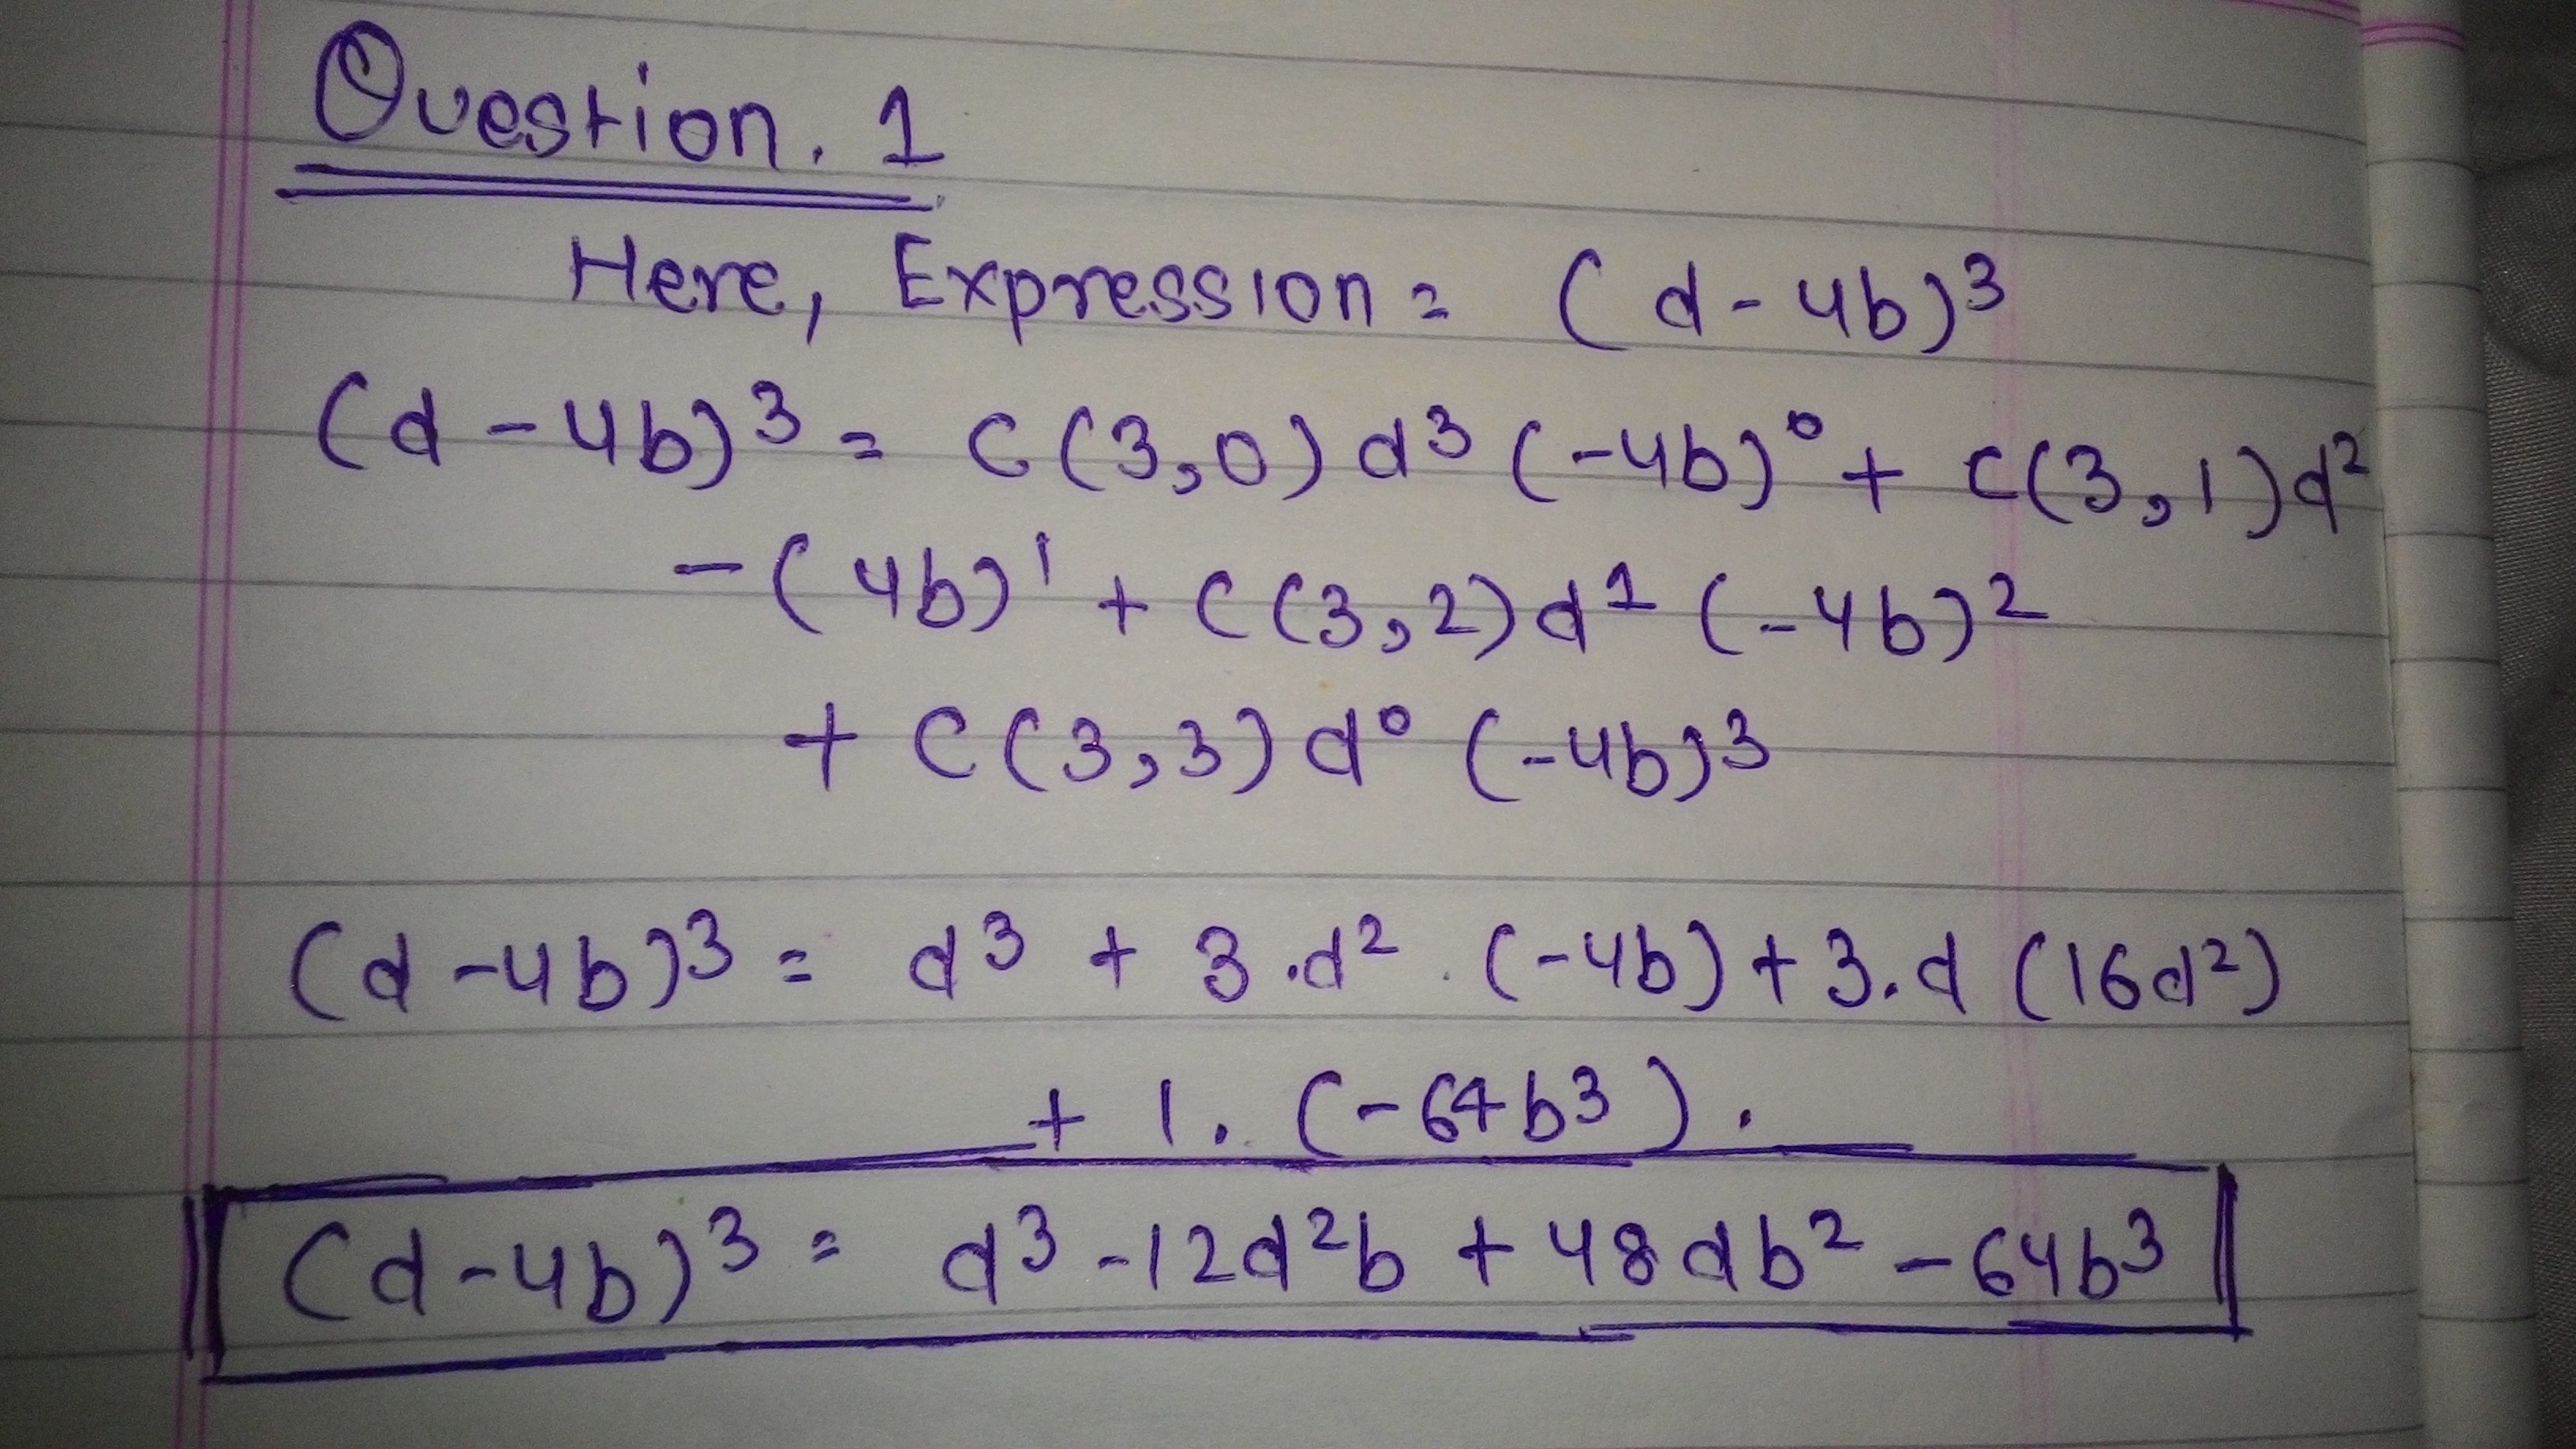 Question. 1
Here, Expression = (d - 4b)³
(d - 4b)³ = C(3,0) d³ (-4b)⁰ + C(3,1)d²
- (4b)¹ + C(3,2) d¹ (-4b)²
+ C(3,3) d⁰ (-4b)³
(d - 4b)³ = d³ + 3 .d² . (-4b) + 3.d (16d²)
+ 1. (-64b³) .
(d - 4b)³ = d³ - 12d²b + 48db² - 64b³